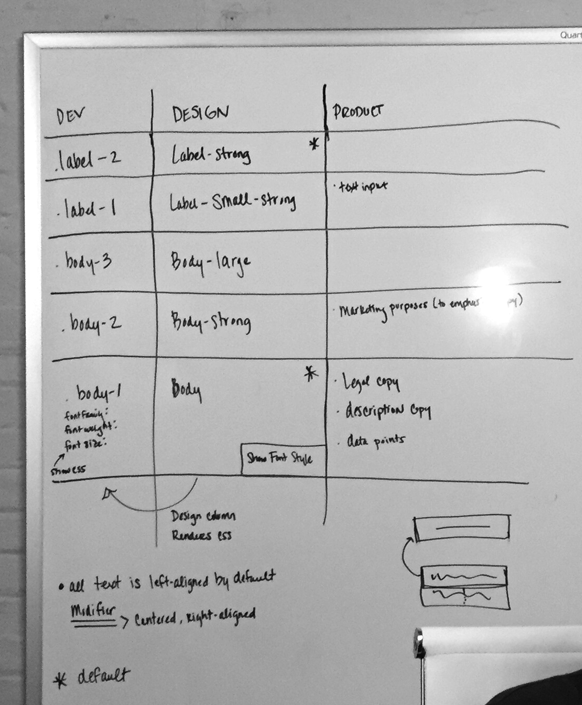 Quart
DEV DESIGN PRODUCT
.label-2 Label-strong *
.label-1 Label-Small-strong · text input
.body-3 Body-large
.body-2 Body-strong · Marketing purposes (to
.body-1 Body * · Legal copy
fontFamily: · description copy
fontweight: · data points
font size:
Show Font Style
show css
Design column
Renders CSS
• all text is left-aligned by default
Modifier
> Centered, Right-aligned
* default